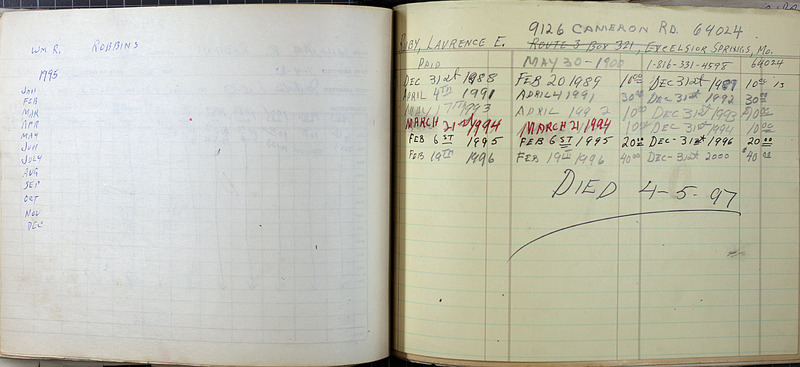 WM R. ROBBINS
1995
JAN
FEB
MAR
APR
MAY
JUN
JULY
AUG
SEP
OCT
NOV
DEC
9126 CAMERON RD. 64024
RUBY, LAURENCE E. ROUTE 3 BOX 321, EXCELSIOR SPRINGS, MO.
PAID MAY 30 - 1900 1-816-331-4598 64024
DEC 31st 1988 FEB 20 1989 10 00 DEC 31st 1989 10 00 13
APRIL 4TH 1991 APRIL 4 1991 30 00 DEC 31st 1992 30 00
MAY 7TH 1993 APRIL 1992 10 00 DEC 31st 1993 10 00
MARCH 21st 1994 MARCH 21 1994 10 00 DEC 31st 1994 10 00
FEB 6ST 1995 FEB 6ST 1995 20 00 DEC-31st 1996 20 00
FEB 19TH 1996 FEB 19TH 1996 40 00 DEC-31st 2000 $40 00
DIED 4-5-97